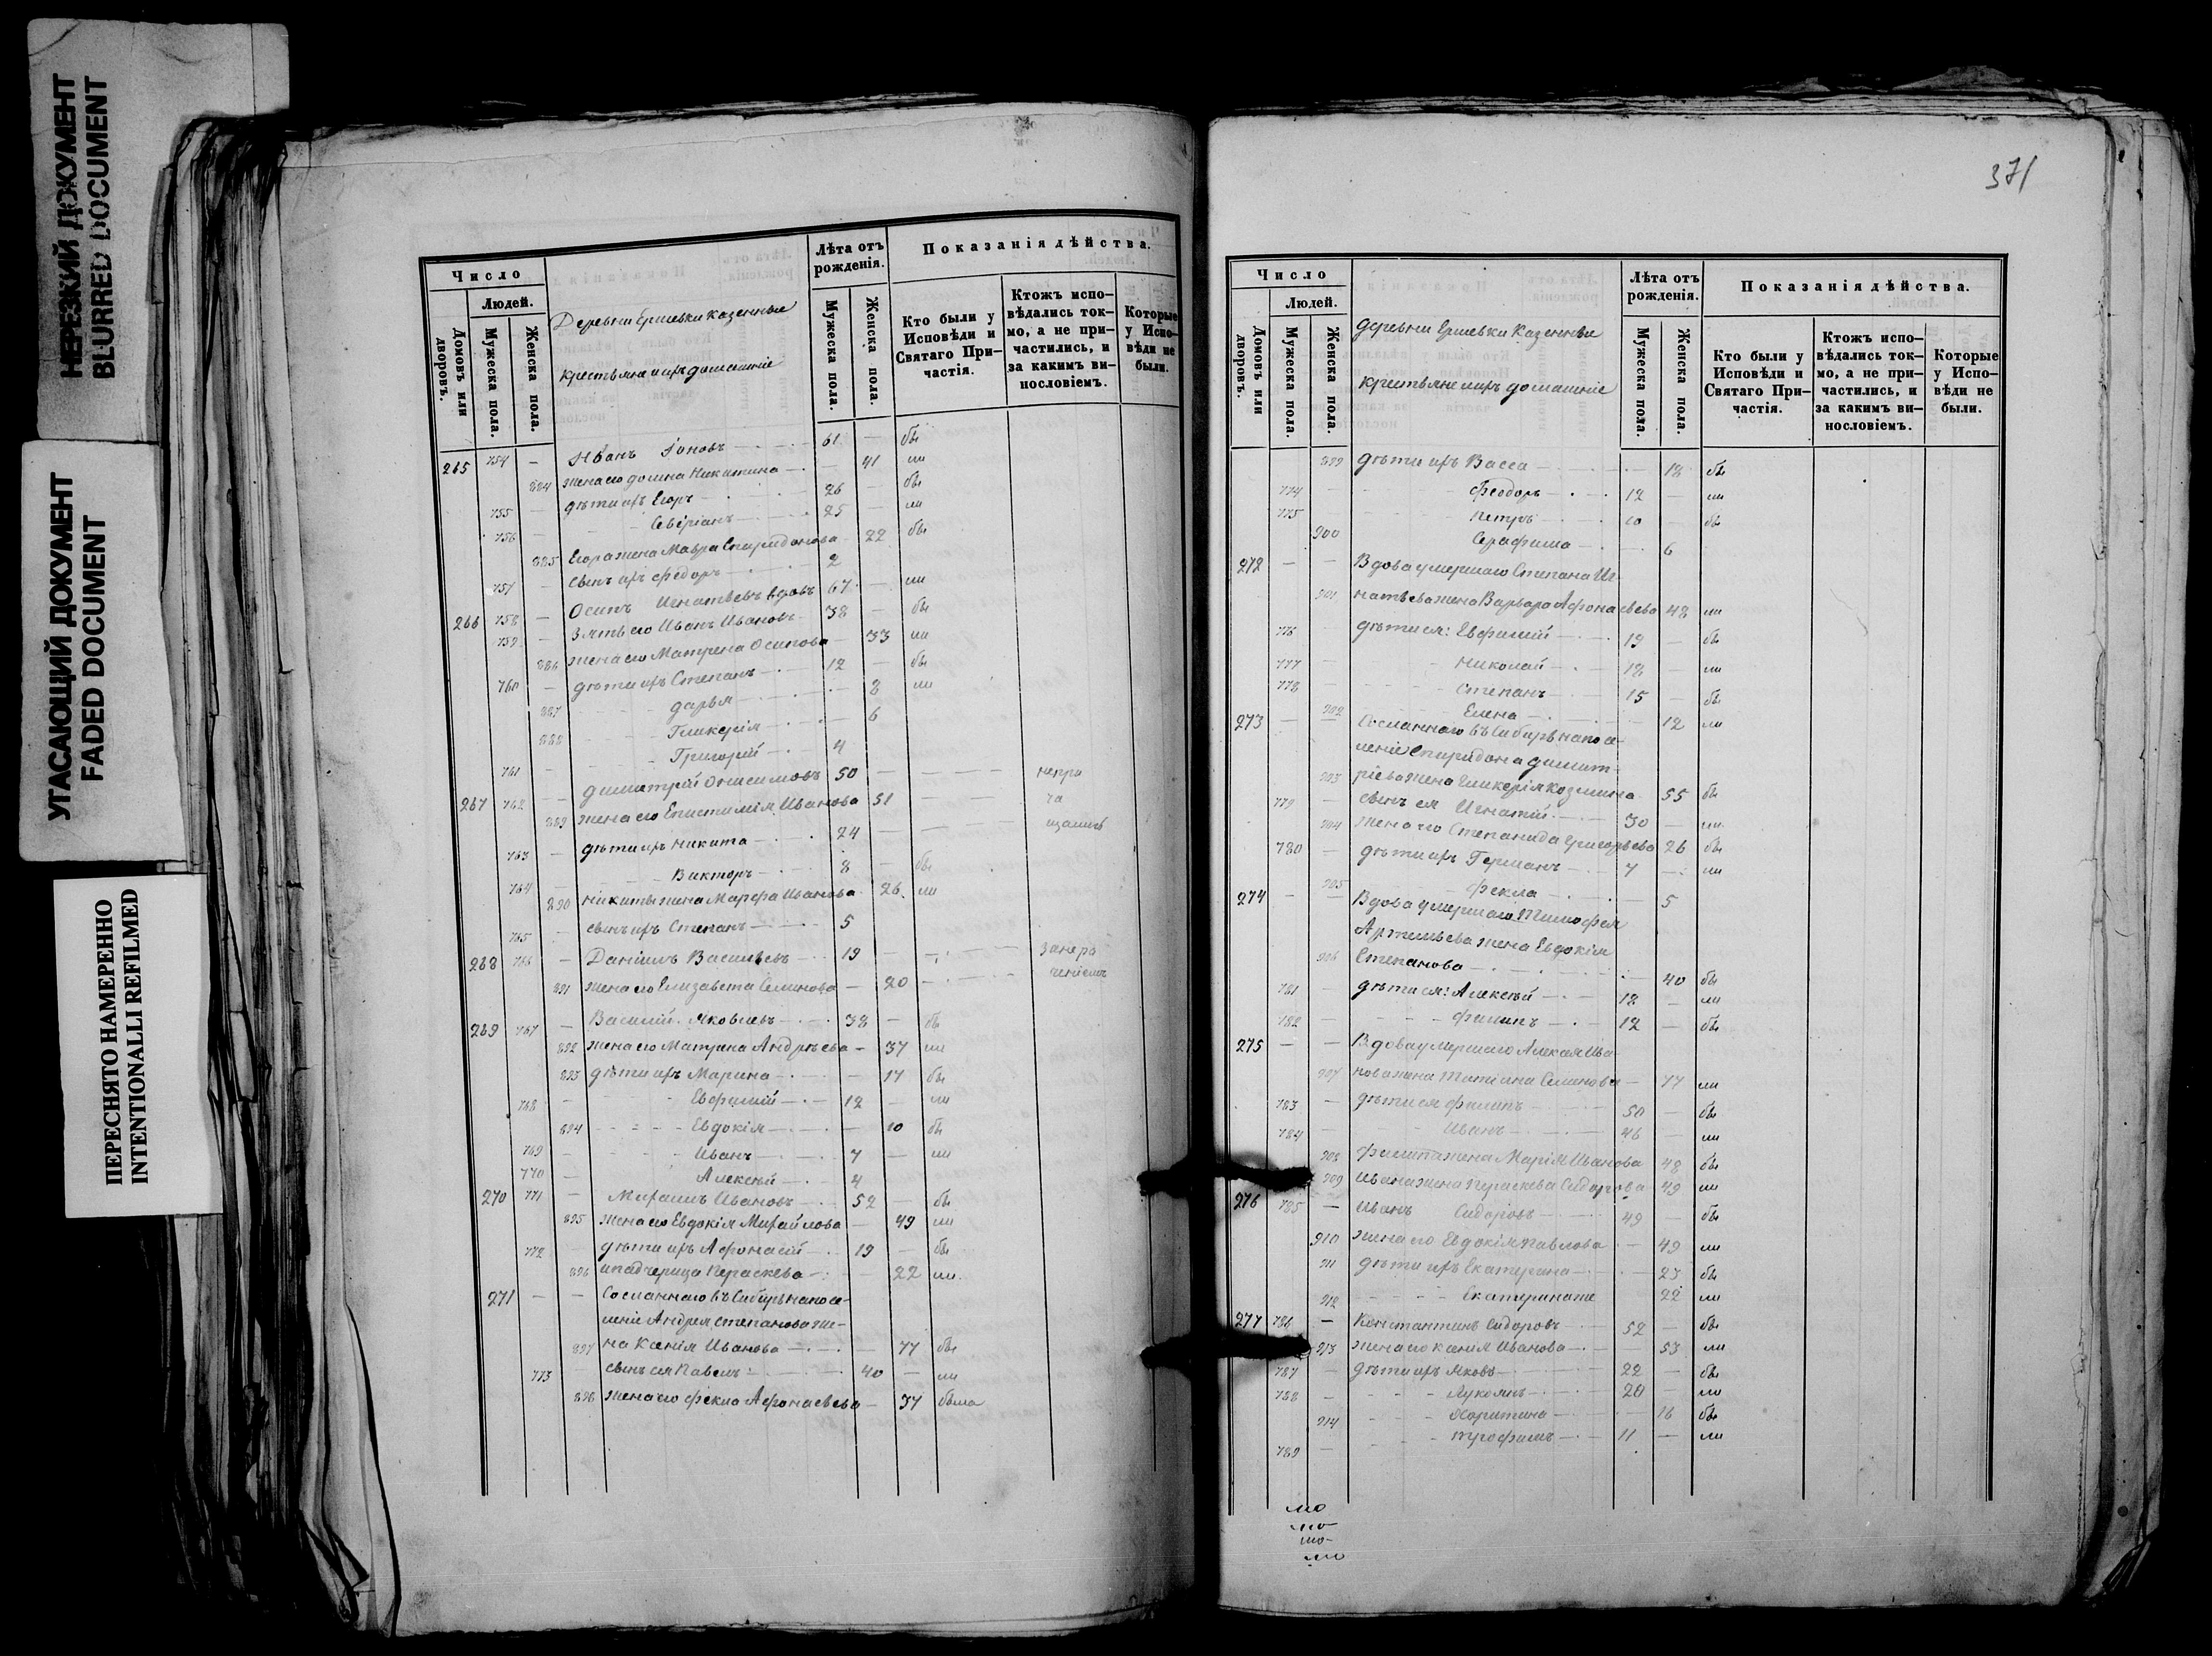 НЕРЕЗКИЙ ДОКУМЕНТ
BLURRED DOCUMENT
УГАСАЮЩИЙ ДОКУМЕНТ
FADED DOCUMENT
ПЕРЕСНЯТО НАМЕРЕННО
INTENTIONALLI REFILMED
Число
Людей.
Домовъ или дворовъ.
Мужеска пола.
Женска пола.
Деревни Ершевки казенные
крестьяне и ихъ домашніе
Лѣта отъ рожденія.
Мужеска пола.
Женска пола.
Показанія дѣйства.
Кто были у Исповѣди и Святаго При-частія.
Ктожъ испо-вѣдались ток-мо, а не при-частились, и за какимъ ви-нословіемъ.
Которые у Испо-вѣди не были.
265 754 — Иванъ Іоновъ 61 — бы
884 жена его Домна Никитина — 41 ли
755 — дѣти ихъ Егоръ 26 — бы
756 — Севиріанъ 25 — ли
885 Егора жена Мавра Спиридонова 22 бы
757 — сынъ ихъ Федоръ 2
266 758 — Осипъ Игнатьевъ вдовъ 67 — ли
759 — Зять его Иванъ Ивановъ 38 — бы
886 жена его Матрена Осипова — 33 ли
760 — дѣти ихъ Степанъ 12 — бы
887 Дарья — 8 ли
888 Гликерія — 6
761 — Григорій 4
267 762 — Димитрій Онисимовъ 50 — непри
889 жена его Епистимія Иванова 51 — ча
763 — дѣти ихъ Никита 24 — щались
764 — Викторъ 8 — бы
890 Никиты жена Марфа Иванова 26 ли
765 — сынъ ихъ Степанъ 5
268 766 — Даніилъ Васильевъ 19 —
891 жена его Елизавета Семенова — 20
269 767 — Василій Яковлевъ 38 — бы
892 жена его Матрена Андреева — 37 ли
893 дѣти ихъ Марина — 17 бы
768 — Евфимій 12 — ли
894 Евдокія — 10 бы
769 — Иванъ 7 — ли
770 — Алексѣй 4
270 771 — Михаилъ Ивановъ 52 — бы
895 жена его Евдокія Михайлова — 49 ли
772 — дѣти ихъ Афонасій 19 — бы
896 и падчерица Пераскева — 22 ли
271 — — Сосланнаго въ Сибирь на посе-
леніе Андрея Степанова же-
897 на Ксенія Иванова — 77 бы
773 сынъ ея Павелъ 40 — ли
898 жена его Фекла Афонасьева — 37 была
371
Число
Людей.
Домовъ или дворовъ.
Мужеска пола.
Женска пола.
Деревни Ершевки Казенные
крестьяне и ихъ домашніе
Лѣта отъ рожденія.
Мужеска пола.
Женска пола.
Показанія дѣйства.
Кто были у Исповѣди и Святаго При-частія.
Ктожъ испо-вѣдались ток-мо, а не при-частились, и за какимъ ви-нословіемъ.
Которые у Испо-вѣди не были.
899 дѣти ихъ Васса — 18 бы
774 — Феодоръ 12 — ли
775 — Петръ 10 — бы
900 Серафима — 6
272 — — Вдова умершаго Степана Иг-
901 натьева жена Варвара Афонасьева 48 ли
776 дѣти ея: Евфимій 19 — бы
777 — Николай 18 — ли
778 — Степанъ 15 — бы
902 Елена — 12 ли
273 — — Сосланнаго въ Сибирь на посе-
леніе Спиридона Димит-
903 ріева жена Гликерія Козмина 55 бы
779 — сынъ ея Игнатій 30 — ли
904 жена его Степанида Григорьева 26 бы
780 — дѣти ихъ Германъ 7 — ли
905 Фекла — 5
274 — — Вдова умершаго Тимофея
Артемьева жена Евдокія
906 Степанова — 40 бы
781 — дѣти ея: Алексѣй 18 — ли
782 — Филипъ 12 — бы
275 — — Вдова умершаго Алексея Ива-
907 нова жена Татіана Семенова — 77 ли
783 — дѣти ея Филипъ 50 — бы
784 — Иванъ 46 — ли
908 Филипа жена Марія Иванова 48 бы
909 Ивана жена Пераскева Сидорова 49 ли
276 785 — Иванъ Сидоровъ 49 — бы
910 жена его Евдокія Павлова — 49 ли
911 дѣти ихъ Екатерина — 23 бы
912 Екатерина же 22 ли
277 786 — Константинъ Сидоровъ 52 — бы
913 жена его Ксенія Иванова — 53 ли
787 — дѣти ихъ Яковъ 22 — бы
788 — Лукоянъ 20 — ли
914 Харитина — 16 бы
789 — Трофимъ 11 — ли